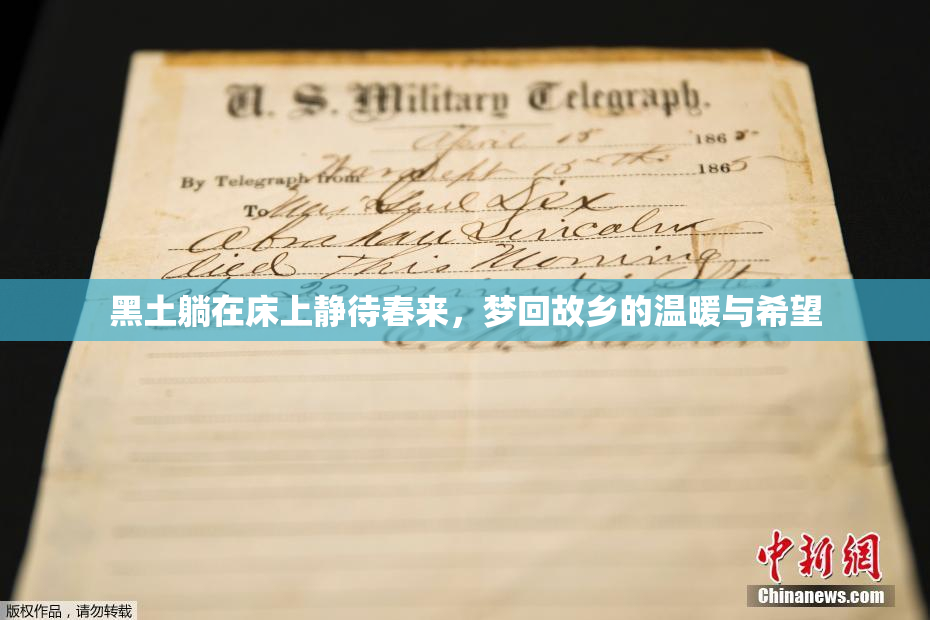 U. S. Military Telegraph.
April 15 1865
By Telegraph from War Dept 15th 1865
To Maj Genl Dix
Abraham Lincoln
died This Morning
at 22 minutes after
黑土躺在床上静待春来，梦回故乡的温暖与希望
E. M. Stanton
中新网
Chinanews.com
版权作品，请勿转载